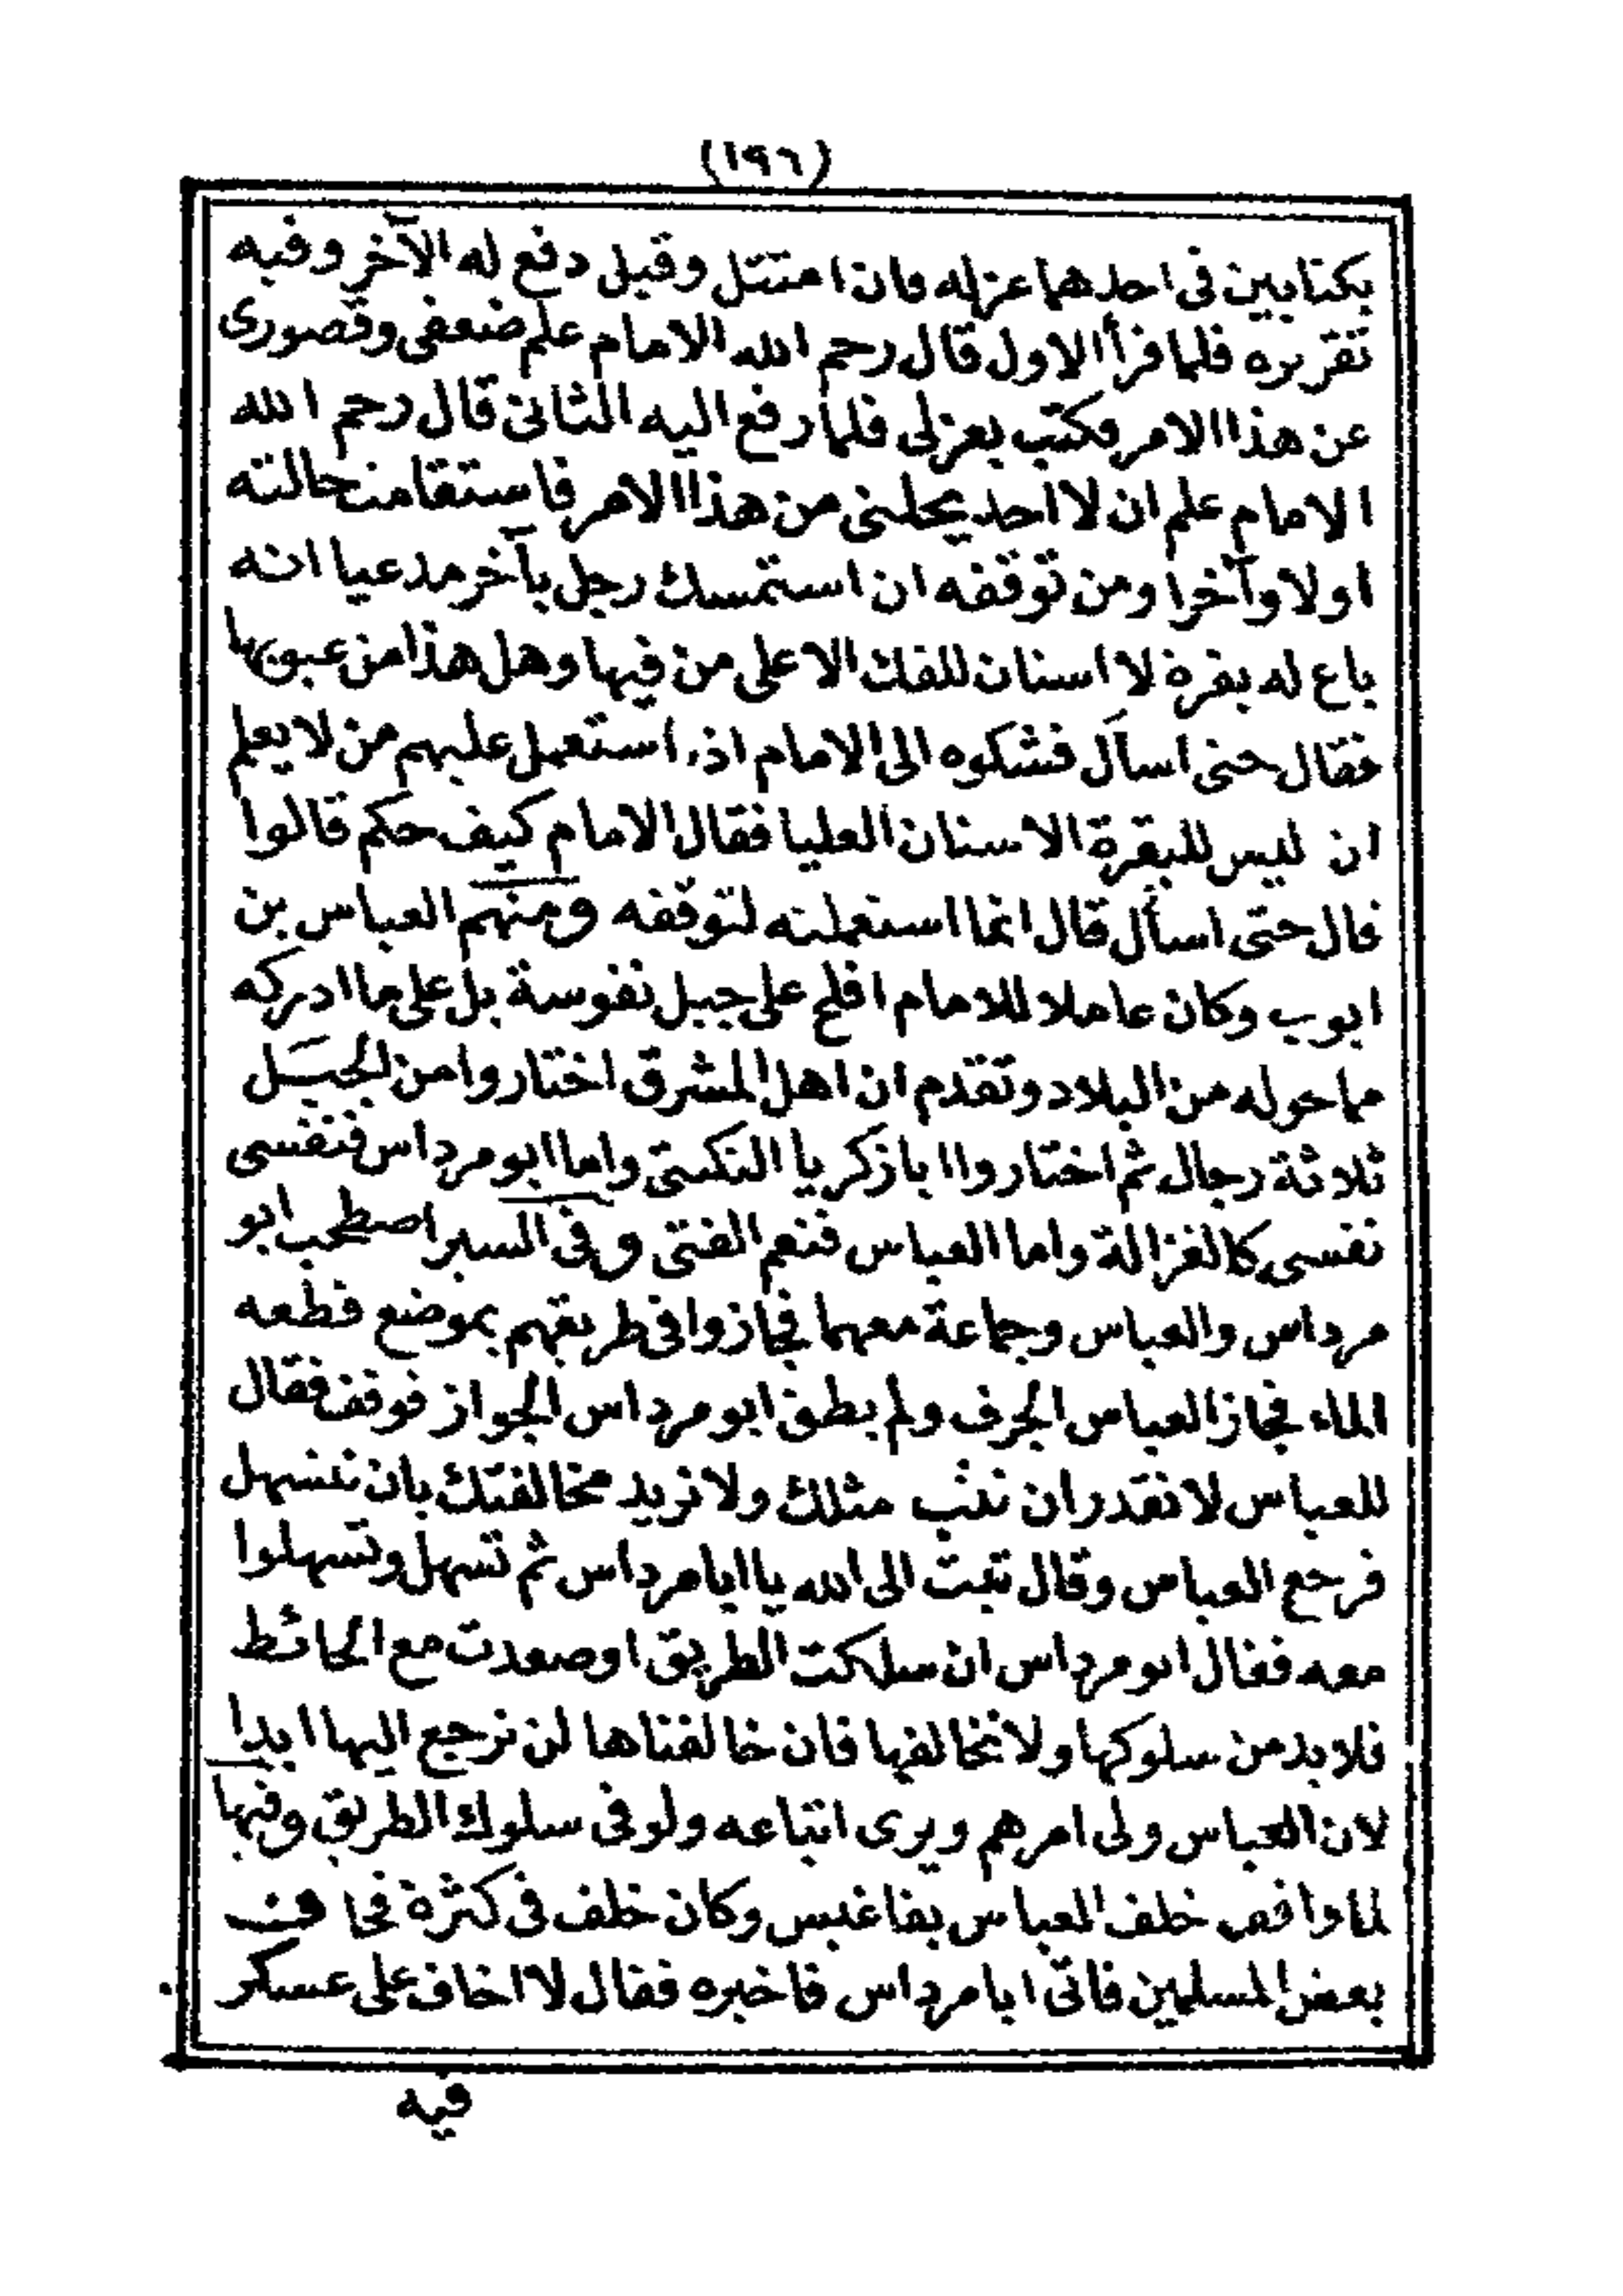 (١٩٦)
بكتابين فى احدهما عزله فان امتثل وقبل دفع له الآخر وفيه
تقريره فلما قرأ الاول قال رحم الله الامام علم ضعفى وقصورى
عن هذا الامر فكتب بعزلى فلما رفع اليه الثانى قال رحم الله
الامام علم ان لا احد يحملنى من هذا الامر فاستقامت حالته
اولا وآخرا ومن توقفه ان استمسك رجل بآخر مدعيا انه
باع له بقرة لا اسنان للفك الاعلى من فيها وهل هذا من عيوبها
فقال حتى اسأل فشكوه الى الامام اذ استعمل عليهم من لا يعلم
ان ليس للبقرة الاسنان العليا فقال الامام كيف حكم قالوا
قال حتى اسأل قال انما استعملته لتوقفه ومنهم العباس بن
ايوب وكان عاملا للامام افلح على جبل نفوسة بل على ما ادركه
مما حوله من البلاد وتقدم ان اهل المشرق اختاروا من الجبل
ثلاثة رجال ثم اختاروا ابا زكريا التكتى واما ابو مرداس فنفسى
نفسى كالغزالة واما العباس فنعم الفتى وفى السير اصطحب ابو
مرداس والعباس وجماعة معهما فجازوا فى طريقهم بموضع قطعه
الماء فجاز العباس الجرف ولم يطق ابو مرداس الجواز فوقف فقال
للعباس لا نقدر ان نثب مثلك ولا نريد مخالفتك بان نتسهل
فرجع العباس وقال تبت الى الله يا ابا مرداس ثم تسهل وتسهلوا
معه فقال ابو مرداس ان سلكت الطريق او صعدت مع الحائط
فلا بد من سلوكها ولا نخالفها فان خالفناها لن نرجع اليها ابدا
لان العباس ولى امرهم ويرى اتباعه ولو فى سلوك الطريق وفيها
لما واقف خلف العباس بفاغيس وكان خلف فى كثرة فخاف
بعض المسلمين فاتى ابا مرداس فاخبره فقال لا اخاف على عسكر
فيه